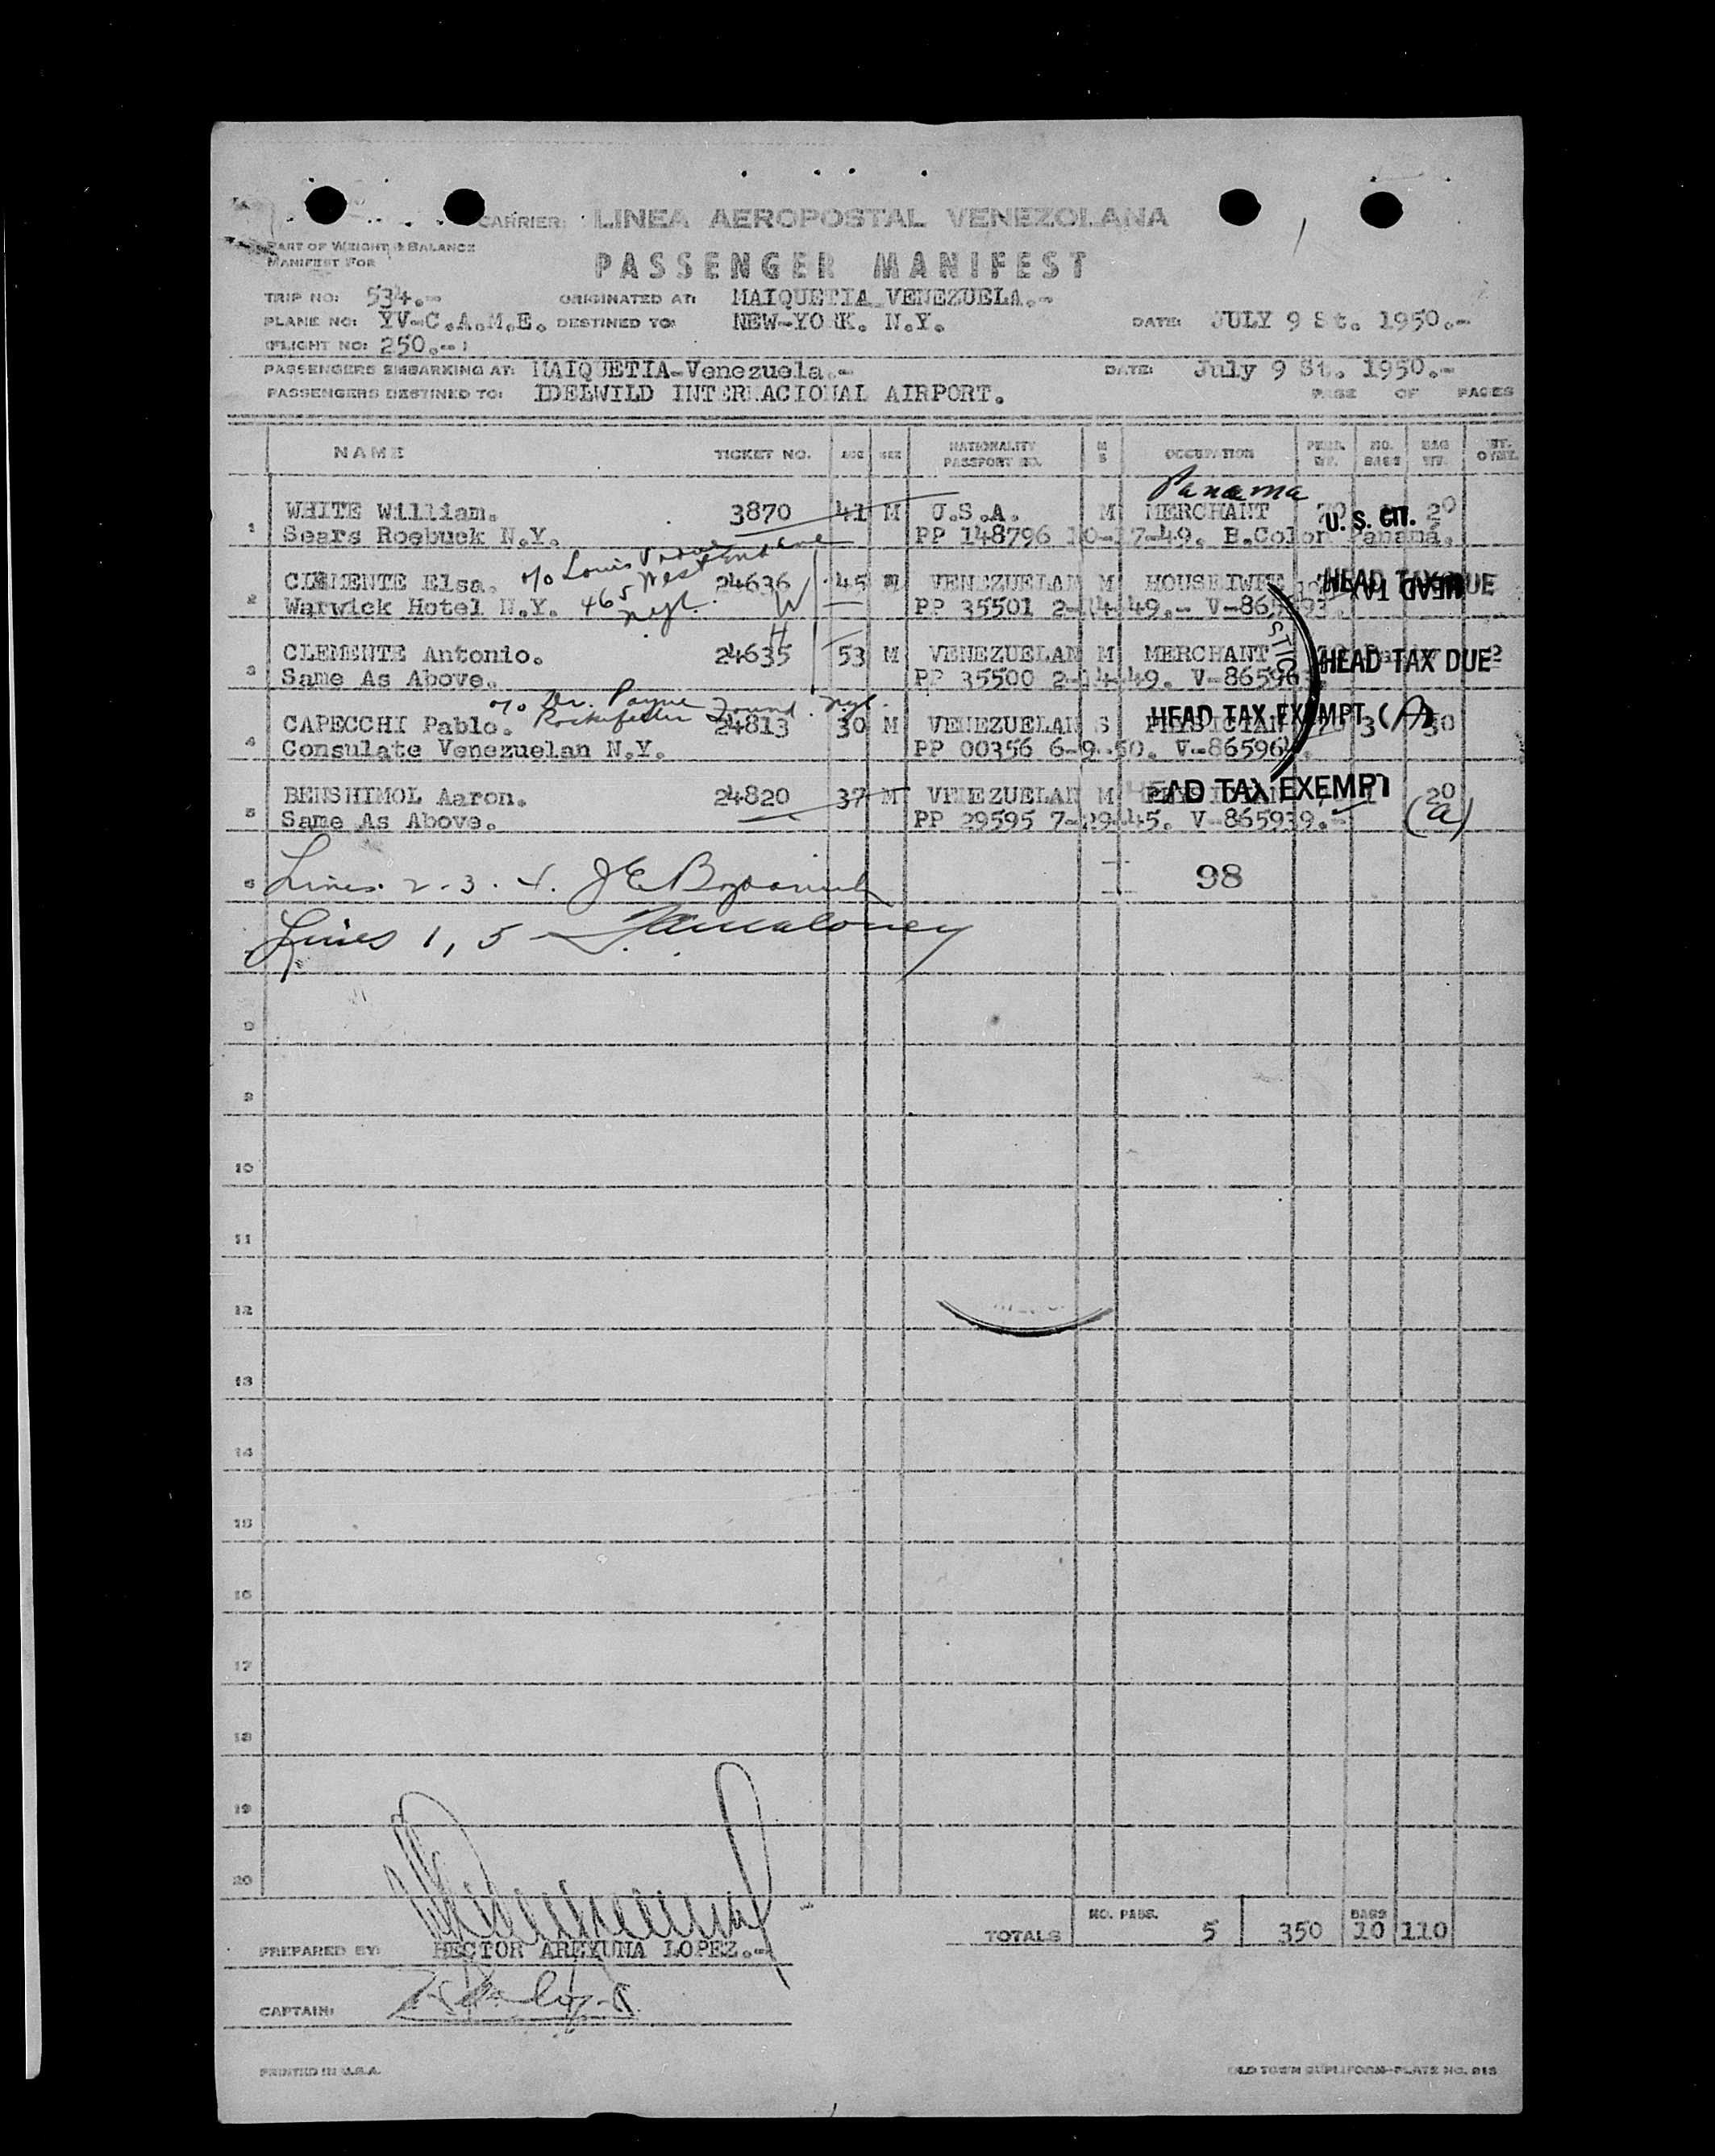 CARRIER: LINEA AEROPOSTAL VENEZOLANA
PART OF WEIGHT & BALANCE
MANIFEST FOR
PASSENGER MANIFEST
TRIP NO: 534.- ORIGINATED AT: MAIQUETIA-VENEZUELA.-
PLANE NO: YV-C.A.M.E. DESTINED TO: NEW-YORK. N.Y. DATE: JULY 9 St. 1950.-
(FLIGHT NO: 250.-)
PASSENGERS EMBARKING AT: MAIQUETIA-Venezuela.- DATE: July 9 St. 1950.-
PASSENGERS DESTINED TO: IDELWILD INTERNACIONAL AIRPORT. PAGE OF PAGES
NAME TICKET NO. AGE SEX NATIONALITY PASSPORT NO. M S OCCUPATION PERS. WT. NO. BAGS BAG WT. WT. O
Panama
WHITE William. 3870 41 M U.S.A. M MERCHANT 70 U. S. CIT. 20
1 Sears Roebuck N.Y. PP 148796 10-17-49. B.Colon Panamá.
c/o Louis West End Ave
CLEMENTE Elsa. 24636 45 VENEZUELAN M HOUSEIWFE HEAD TAX DUE
2 Warwick Hotel N.Y. 465 nyc. W PP 35501 2-14-49.- V-865
H
CLEMENTE Antonio. 24635 53 M VENEZUELAN M MERCHANT HEAD TAX DUE
3 Same As Above. PP 35500 2-14-49. V-86596
c/o Dr. Payne Rockefeller Found. nyc.
CAPECCHI Pablo. 24813 30 M VENEZUELAN S PHYSICIAN HEAD TAX EXEMPT (A) 3 30
4 Consulate Venezuelan N.Y. PP 00356 6-9-50. V-865964.
BENSHIMOL Aaron. 24820 37 M VENEZUELAN M HEAD TAX EXEMPT 20
5 Same As Above. PP 29595 7-29-45. V-865939.- (a)
6 Lines. 2-3. 4. 98
Lines 1, 5 Maloney
9
10
11
12
13
14
15
16
17
18
19
20
TOTALS NO. PASS. 5 350 BAGS 10 110
PREPARED BY: HECTOR AREXUNA LOPEZ.-
CAPTAIN:
PRINTED IN U.S.A. OLD TOWN DUPLIFORM-PLATE NO. 813